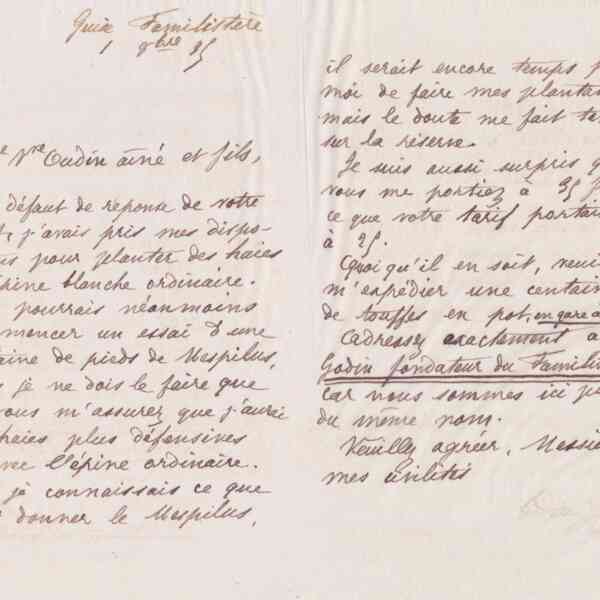 Guise Familistère
1 9bre 85
Vve Oudin aîné et fils,
défaut de réponse de votre
j'avais pris mes dispo-
pour planter des haies
épine blanche ordinaire.
pourrais néanmoins
mencer un essai d'une
taine de pieds de Mespilus,
je ne dois le faire que
vous m'assurez que j'aurai
haies plus défensives
que l'épine ordinaire.
je connaissais ce que
donner le Mespilus,
il serait encore temps p
moi de faire mes plantat
mais le doute me fait te
sur la réserve.
Je suis aussi surpris q
vous me portiez à 35
ce que votre tarif portai
à 25.
Quoiqu'il en soit, veui
m'expédier une centain
de touffes en pot, en gare à
adressez exactement à
Godin fondateur du Famili
car nous sommes ici
du même nom.
Veuillez agréer, Messie
mes civilités